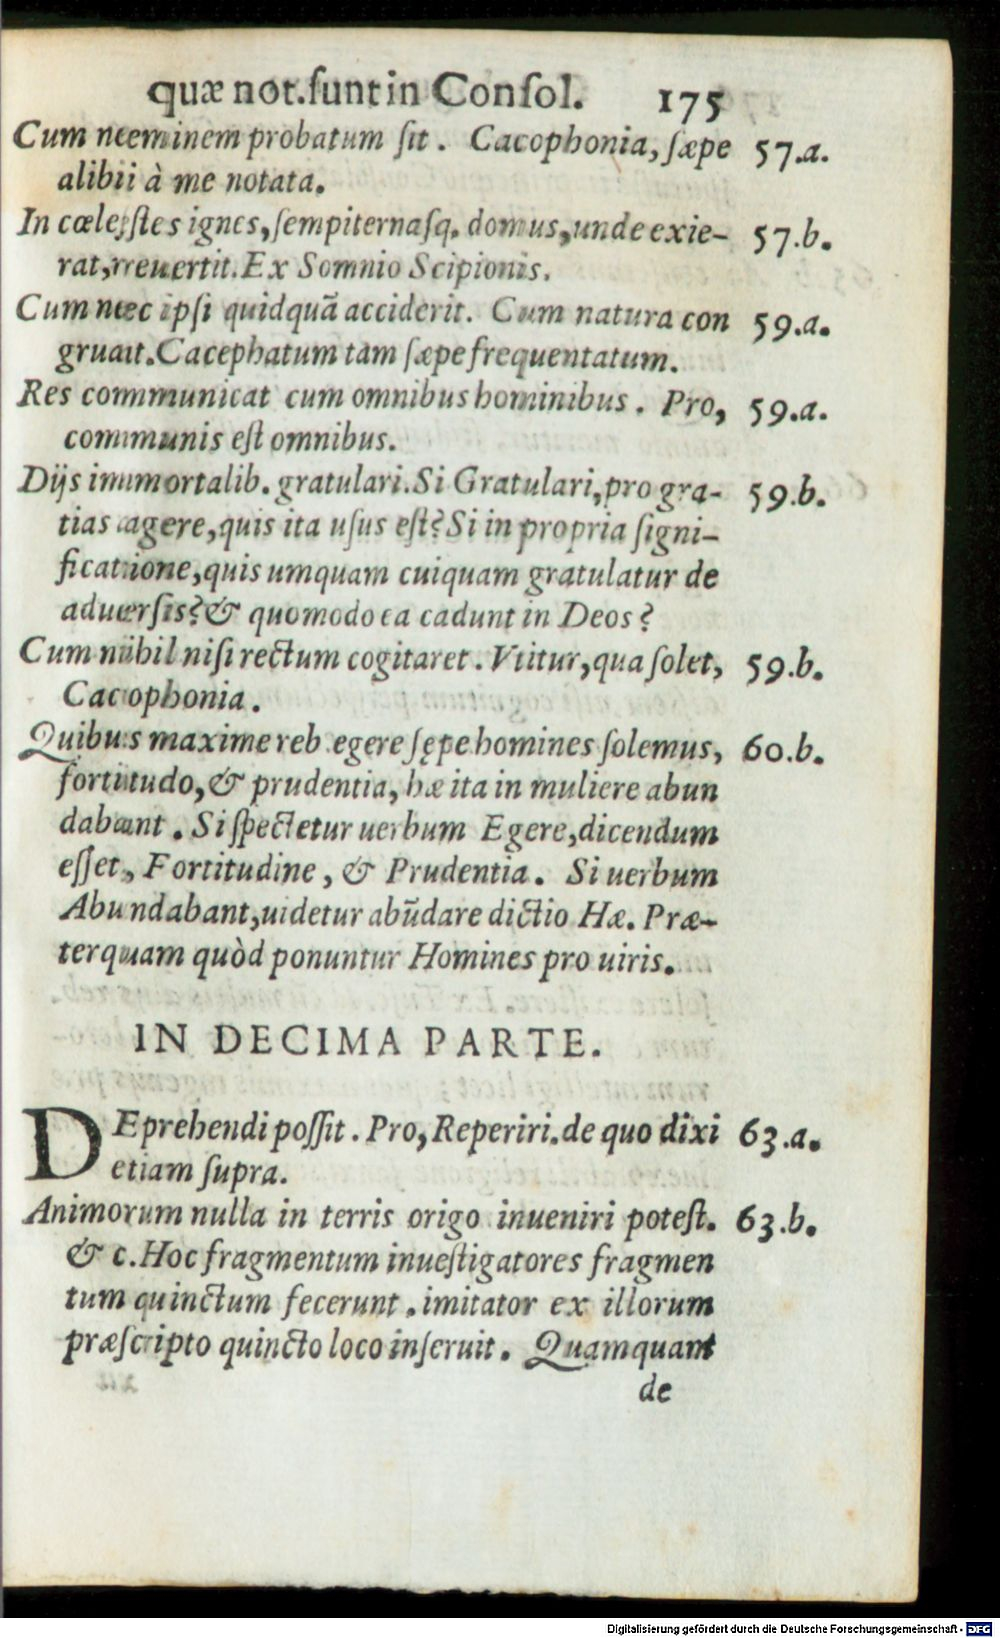 quæ not. sunt in Consol. 175
Cum neminem probatum sit. Cacophonia, sæpe 57.a.
alibi à me notata.
In cœlestes ignes, sempiternasq. domus, unde exie- 57.b.
rat, reuertit. Ex Somnio Scipionis.
Cum nec ipsi quidquã acciderit. Cum natura con 59.a.
gruat. Cacephatum tam sæpe frequentatum.
Res communicat cum omnibus hominibus. Pro, 59.a.
communis est omnibus.
Dijs immortalib. gratulari. Si Gratulari, pro gra- 59.b.
tias agere, quis ita usus est? Si in propria signi-
ficatione, quis umquam cuiquam gratulatur de
aduersis? & quomodo ea cadunt in Deos?
Cum nihil nisi rectum cogitaret. Vtitur, qua solet, 59.b.
Cacophonia.
Quibus maxime reb. egere sępe homines solemus, 60.b.
fortitudo, & prudentia, hæ ita in muliere abun
dabant. Si spectetur uerbum Egere, dicendum
esset, Fortitudine, & Prudentia. Si uerbum
Abundabant, uidetur abũdare dictio Hæ. Præ-
terquam quòd ponuntur Homines pro uiris.
IN DECIMA PARTE.
DEprehendi possit. Pro, Reperiri. de quo dixi 63.a.
etiam supra.
Animorum nulla in terris origo inueniri potest. 63.b.
& c. Hoc fragmentum inuestigatores fragmen
tum quinctum fecerunt. imitator ex illorum
præscripto quincto loco inseruit. Quamquam
de
Digitalisierung gefördert durch die Deutsche Forschungsgemeinschaft - DFG